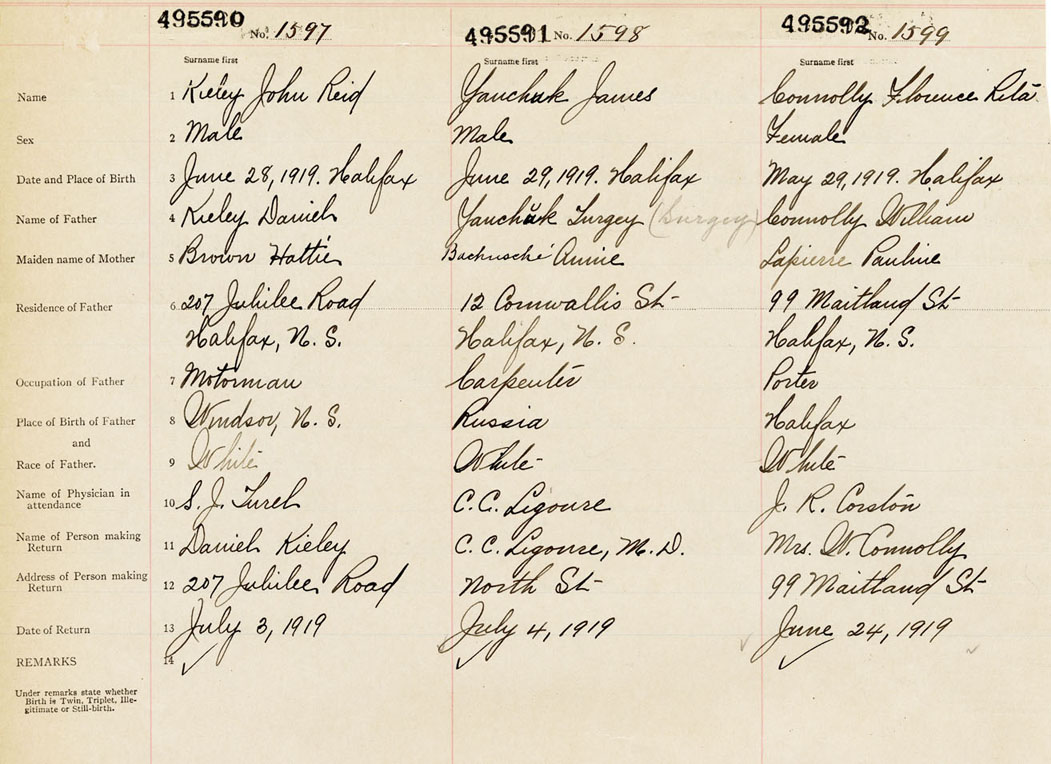 495590 No. 1597 495591 No. 1598 495592 No. 1599
Surname first Surname first Surname first
Name 1 Kieley John Reid Yanchuk James Connolly Florence Rita
Sex 2 Male Male Female
Date and Place of Birth 3 June 28, 1919. Halifax June 29, 1919. Halifax May 29, 1919. Halifax
Name of Father 4 Kieley Daniel Yanchuk Surgey (Surgey) Connolly William
Maiden name of Mother 5 Brown Hattie Annie Lapierre Pauline
Residence of Father 6 207 Jubilee Road 12 Cornwallis St 99 Maitland St
Halifax, N. S. Halifax, N. S. Halifax, N. S.
Occupation of Father 7 Motorman Carpenter Porter
Place of Birth of Father 8 Windsor, N. S. Russia Halifax
and
Race of Father. 9 White White White
Name of Physician in
attendance 10 S. J. C. C. Ligoure J. R. Corston
Name of Person making
Return 11 Daniel Kieley C. C. Ligoure, M. D. Mrs. W. Connolly
Address of Person making
Return 12 207 Jubilee Road North St 99 Maitland St
Date of Return 13 July 3, 1919 July 4, 1919 June 24, 1919
REMARKS 14
Under remarks state whether
Birth is Twin, Triplet, Ille-
gitimate or Still-birth.